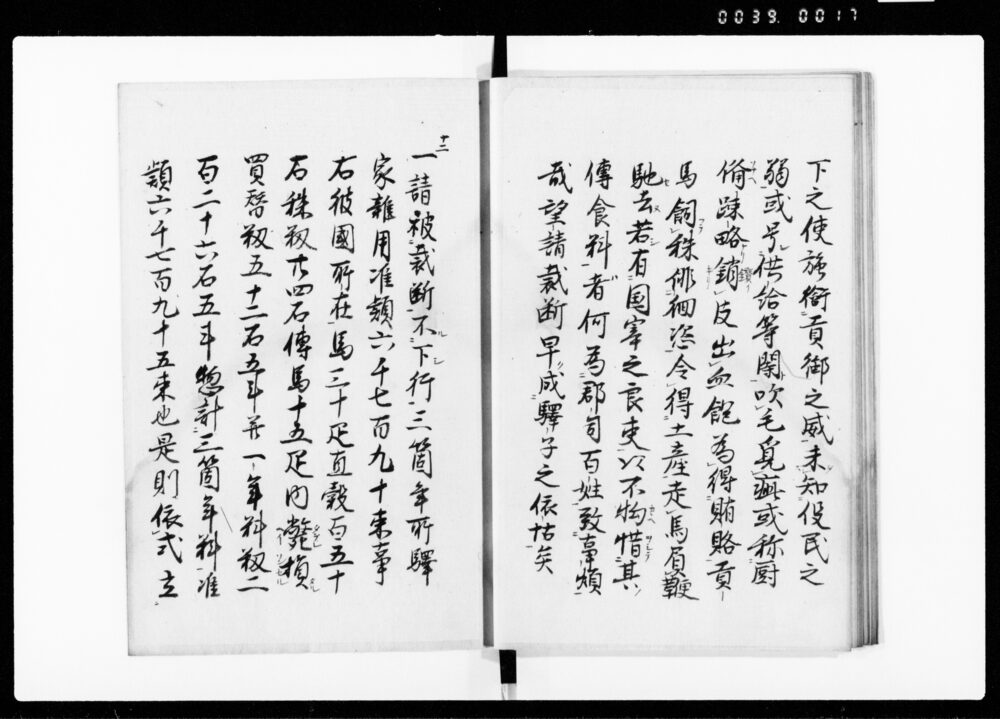 0039. 0017
下之使施衒貢御之威未知役民之
弱或号供給等閑吹毛覓疵或称厨
備踈略銷皮出血飽為得賄賂貢
馬飼秣俳徊恣令得土産走馬屓鞭
馳去若有国宰之良吏以不物惜其
傳食料者何為郡司百姓致事煩
哉望請裁断早成驛子之依怙矣
十二
一請被裁断不下行三箇年所驛
家雜用准穎六千七百九十束事
右彼國所在馬三十疋直穀百五十
石秣籾廿四石傳馬十五疋内斃損
買替籾五十二石五斗并一年料籾二
百二十六石五斗惣計三箇年料准
穎六千七百九十五束也是則依式立